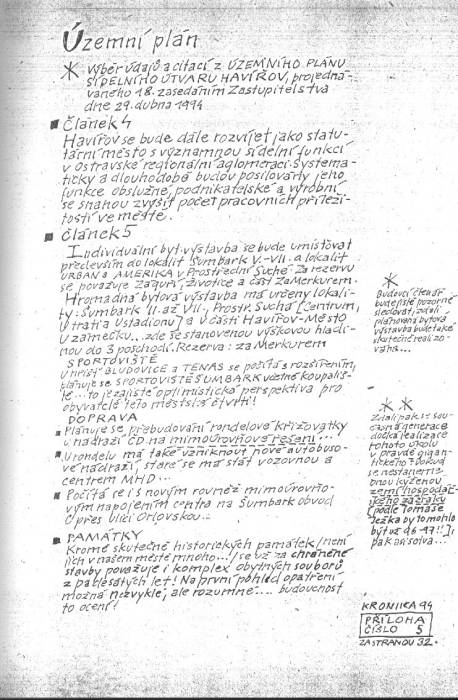 Územní plán
* Výběr údajů a citací z ÚZEMNÍHO PLÁNU
SÍDELNÍHO ÚTVARU HAVÍŘOV, projedná-
vaného 18. zasedáním Zastupitelstva
dne 29. dubna 1994
■ Článek 4
Havířov se bude dále rozvíjet jako statu-
tární město s významnou sídelní funkcí
v Ostravské regionální aglomeraci. Systema-
ticky a dlouhodobě budou posilovány jeho
funkce obslužné, podnikatelské a výrobní
se snahou zvýšit počet pracovních příleži-
tostí ve městě.
■ Článek 5
Individuální byt. výstavba se bude umisťovat
především do lokalit Šumbark V.-VII. a lokalit
URBAN a AMERIKA v Prostřední Suché. Za rezervu
se považuje Záguří, Životice a část Za Merkurem.
Hromadná bytová výstavba má určeny lokali-
ty: Šumbark II. až VII., Prostř. Suchá [Centrum,
U trati a U stadionu] a v části Havířov-Město
U zámečku... zde se stanovenou výškovou hladi-
nou do 3 poschodí. Rezerva: za Merkurem
SPORTOVIŠTĚ
U hřišť BLUDOVICE a TENAS se počítá s rozšířením,
plánuje se SPORTOVIŠTĚ ŠUMBARK včetně koupališ-
tě... to je zajisté optimistická perspektiva pro
obyvatele této městské čtvrti!
DOPRAVA
■ Plánuje se přebudování rondelové křižovatky
u nádraží ČD na mimoúrovňové řešení...
■ U rondelu má také vzniknout nové autobuso-
vé nádraží, staré se má stát vozovnou a
centrem MHD...
■ Počítá se i s novým rovněž mimoúrovňo-
vým napojením centra na Šumbark obvod
přes ulici Orlovskou...
■ PAMÁTKY
Kromě skutečně historických památek /není
jich v našem městě mnoho.../ se už za chráněné
stavby považuje i komplex obytných souborů
z padesátých let! Na první pohled opatření
možná nezvyklé, ale rozumné.... budoucnost
to ocení!
*
Budoucí čtenář
bude jistě pozorně
sledovat, zdali
plánovaná bytová
výstavba bude také
skutečně realizo-
vána...
* *
Zdali pak i sou-
časná generace
dočká realizace
tohoto úkolu
v pravdě gigan-
tického? Pokud
se nestane ni-
bnou kýženou
zemí hospodář-
ského zázraku
[podle Tomáše
Ježka by to mohlo
být už 96-97!!],
pak on sotva...
KRONIKA 94
PŘÍLOHA
ČÍSLO 5
ZA STRANOU 32.